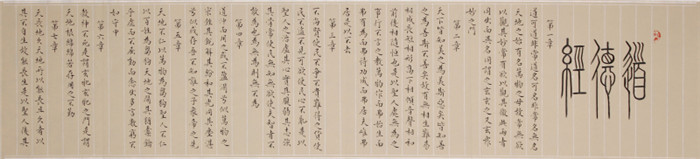 道德經
第一章
道可道非常道名可名非常名無名
天地之始有名萬物之母故常無欲
以觀其妙常有欲以觀其徼此兩者
同出而異名同謂之玄玄之又玄眾
妙之門
第二章
天下皆知美之為美斯惡矣皆知善
之為善斯不善矣故有無相生難易
相成長短相形高下相傾音聲相和
前後相隨也是以聖人處無為之
事行不言之教萬物作而弗始生而
弗有為而弗恃功成而弗居夫唯弗
居是以不去
第三章
不尚賢使民不爭不貴難得之貨使
民不為盜不見可欲使民心不亂是以
聖人之治虛其心實其腹弱其志強
其骨常使民無知無欲使夫智者不
敢為也為無為則無不為
第四章
道沖而用之或不盈淵兮似萬物之
宗挫其銳解其紛和其光同其塵湛
兮似或存吾不知誰之子象帝之先
第五章
天地不仁以萬物為芻狗聖人不仁
以百姓為芻狗天地之間其猶橐籥
乎虛而不屈動而愈出多言數窮不
如守中
第六章
谷神不死是謂玄牝玄牝之門是謂
天地根綿綿若存用之不勤
第七章
天長地久天地所以能長且久者以
其不自生故能長生是以聖人後其